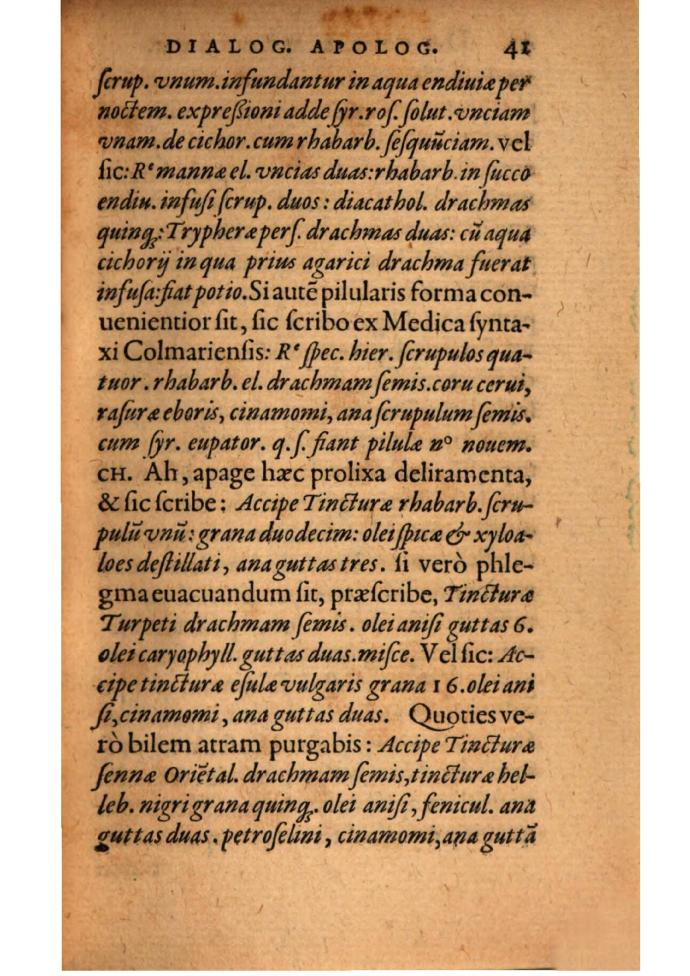 DIALOG. APOLOG. 41
ſcrup. vnum.infundantur in aqua endiuiæ per
noctem. expreßioni adde ſyr.roſ. ſolut.vnciam
vnam.de cichor.cum rhabarb. ſeſquũciam. vel
ſic: Rᵉ mannæ el. vncias duas:rhabarb. in ſucco
endiu. infuſi ſcrup. duos: diacathol. drachmas
quinq;: Trypheræ perſ. drachmas duas: cũ aqua
cichorij in qua prius agarici drachma fuerat
infuſa:fiat potio. Si autẽ pilularis forma con-
uenientior ſit, ſic ſcribo ex Medica ſynta-
xi Colmarienſis: Rᵉ ſpec. hier. ſcrupulos qua-
tuor. rhabarb. el. drachmam ſemis.coru cerui,
raſuræ eboris, cinamomi, ana ſcrupulum ſemis.
cum ſyr. eupator. q.ſ. fiant pilulæ nº nouem.
CH. Ah, apage hæc prolixa deliramenta,
& ſic ſcribe: Accipe Tincturæ rhabarb. ſcru-
pulũ vnũ: grana duodecim: olei ſpicæ & xyloa-
loes deſtillati, ana guttas tres. ſi verò phle-
gma euacuandum ſit, præſcribe, Tincturæ
Turpeti drachmam ſemis. olei aniſi guttas 6.
olei caryophyll. guttas duas.miſce. Vel ſic: Ac-
cipe tincturæ eſulæ vulgaris grana 16. olei ani
ſi,cinamomi, ana guttas duas. Quoties ve-
rò bilem atram purgabis: Accipe Tincturæ
ſennæ Oriẽtal. drachmam ſemis,tincturæ hel-
leb. nigri grana quinq;. olei aniſi, fenicul. ana
guttas duas. petroſelini, cinamomi,ana guttã